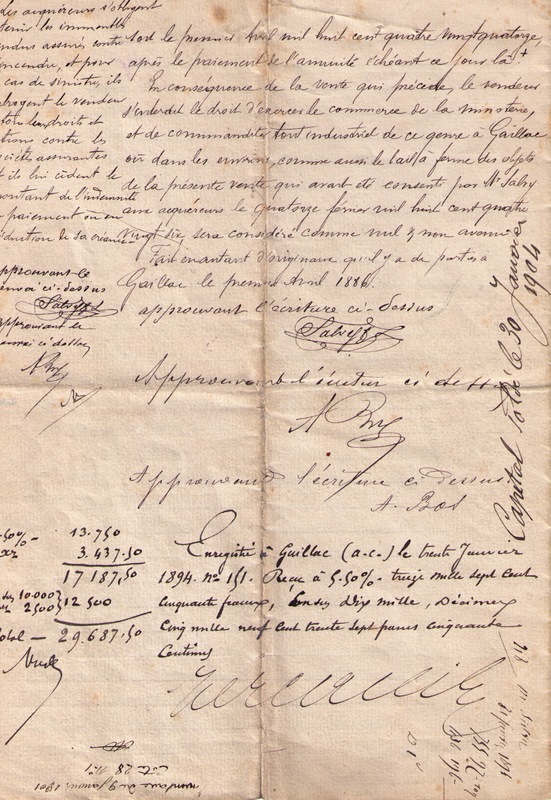 Les acquéreurs s'obligent
tenir les immeubles
vendus assurés contre
incendie, et pour
cas de sinistre, ils
subrogent le vendeur
droits et
actions contre les
assurantes
et ils lui cèdent le
montant de l'indemnité
paiement ou en
réduction de sa créance
approuvant le
renvoi ci-dessus
Salvy
approuvant le
renvoi ci-dessus
tout le premier Avril mil huit cent quatre vingt quatorze,
après le paiement de l'annuité échéant ce jour là +
En conséquence de la vente qui précède, le vendeur
s'interdit le droit d'exercer le commerce de la minoterie,
et de commanditer tout industriel de ce genre à Gaillac
ou dans les environs, comme aussi le bail à ferme des objets
de la présente vente qui avait été consenti par Mr Salvy
aux acquéreurs le quatorze février mil huit cent quatre
vingt six sera considéré comme nul & non avenu
Fait en autant d'originaux qu'il y a de parties à
Gaillac le premier Avril 1886.
approuvant l'écriture ci-dessus
Salvy
Approuvant l'écriture ci dessus
Approuvant l'écriture ci dessus
A. Bos
5.50%- 13.750
3.437.50
17187,50
10.000
2500 } 12 500
Total — 29.687.50
Enregistré à Gaillac (a.c.) le trente Janvier
1894. no 151. Reçu à 5.50%- treize mille sept cent
cinquante francs, en sus Dix mille, Décimes
Cinq mille neuf cent trente sept francs cinquante
Centimes
Capital soldé le 30 Janvier
1904
janvier 1901
côté 28 No 1